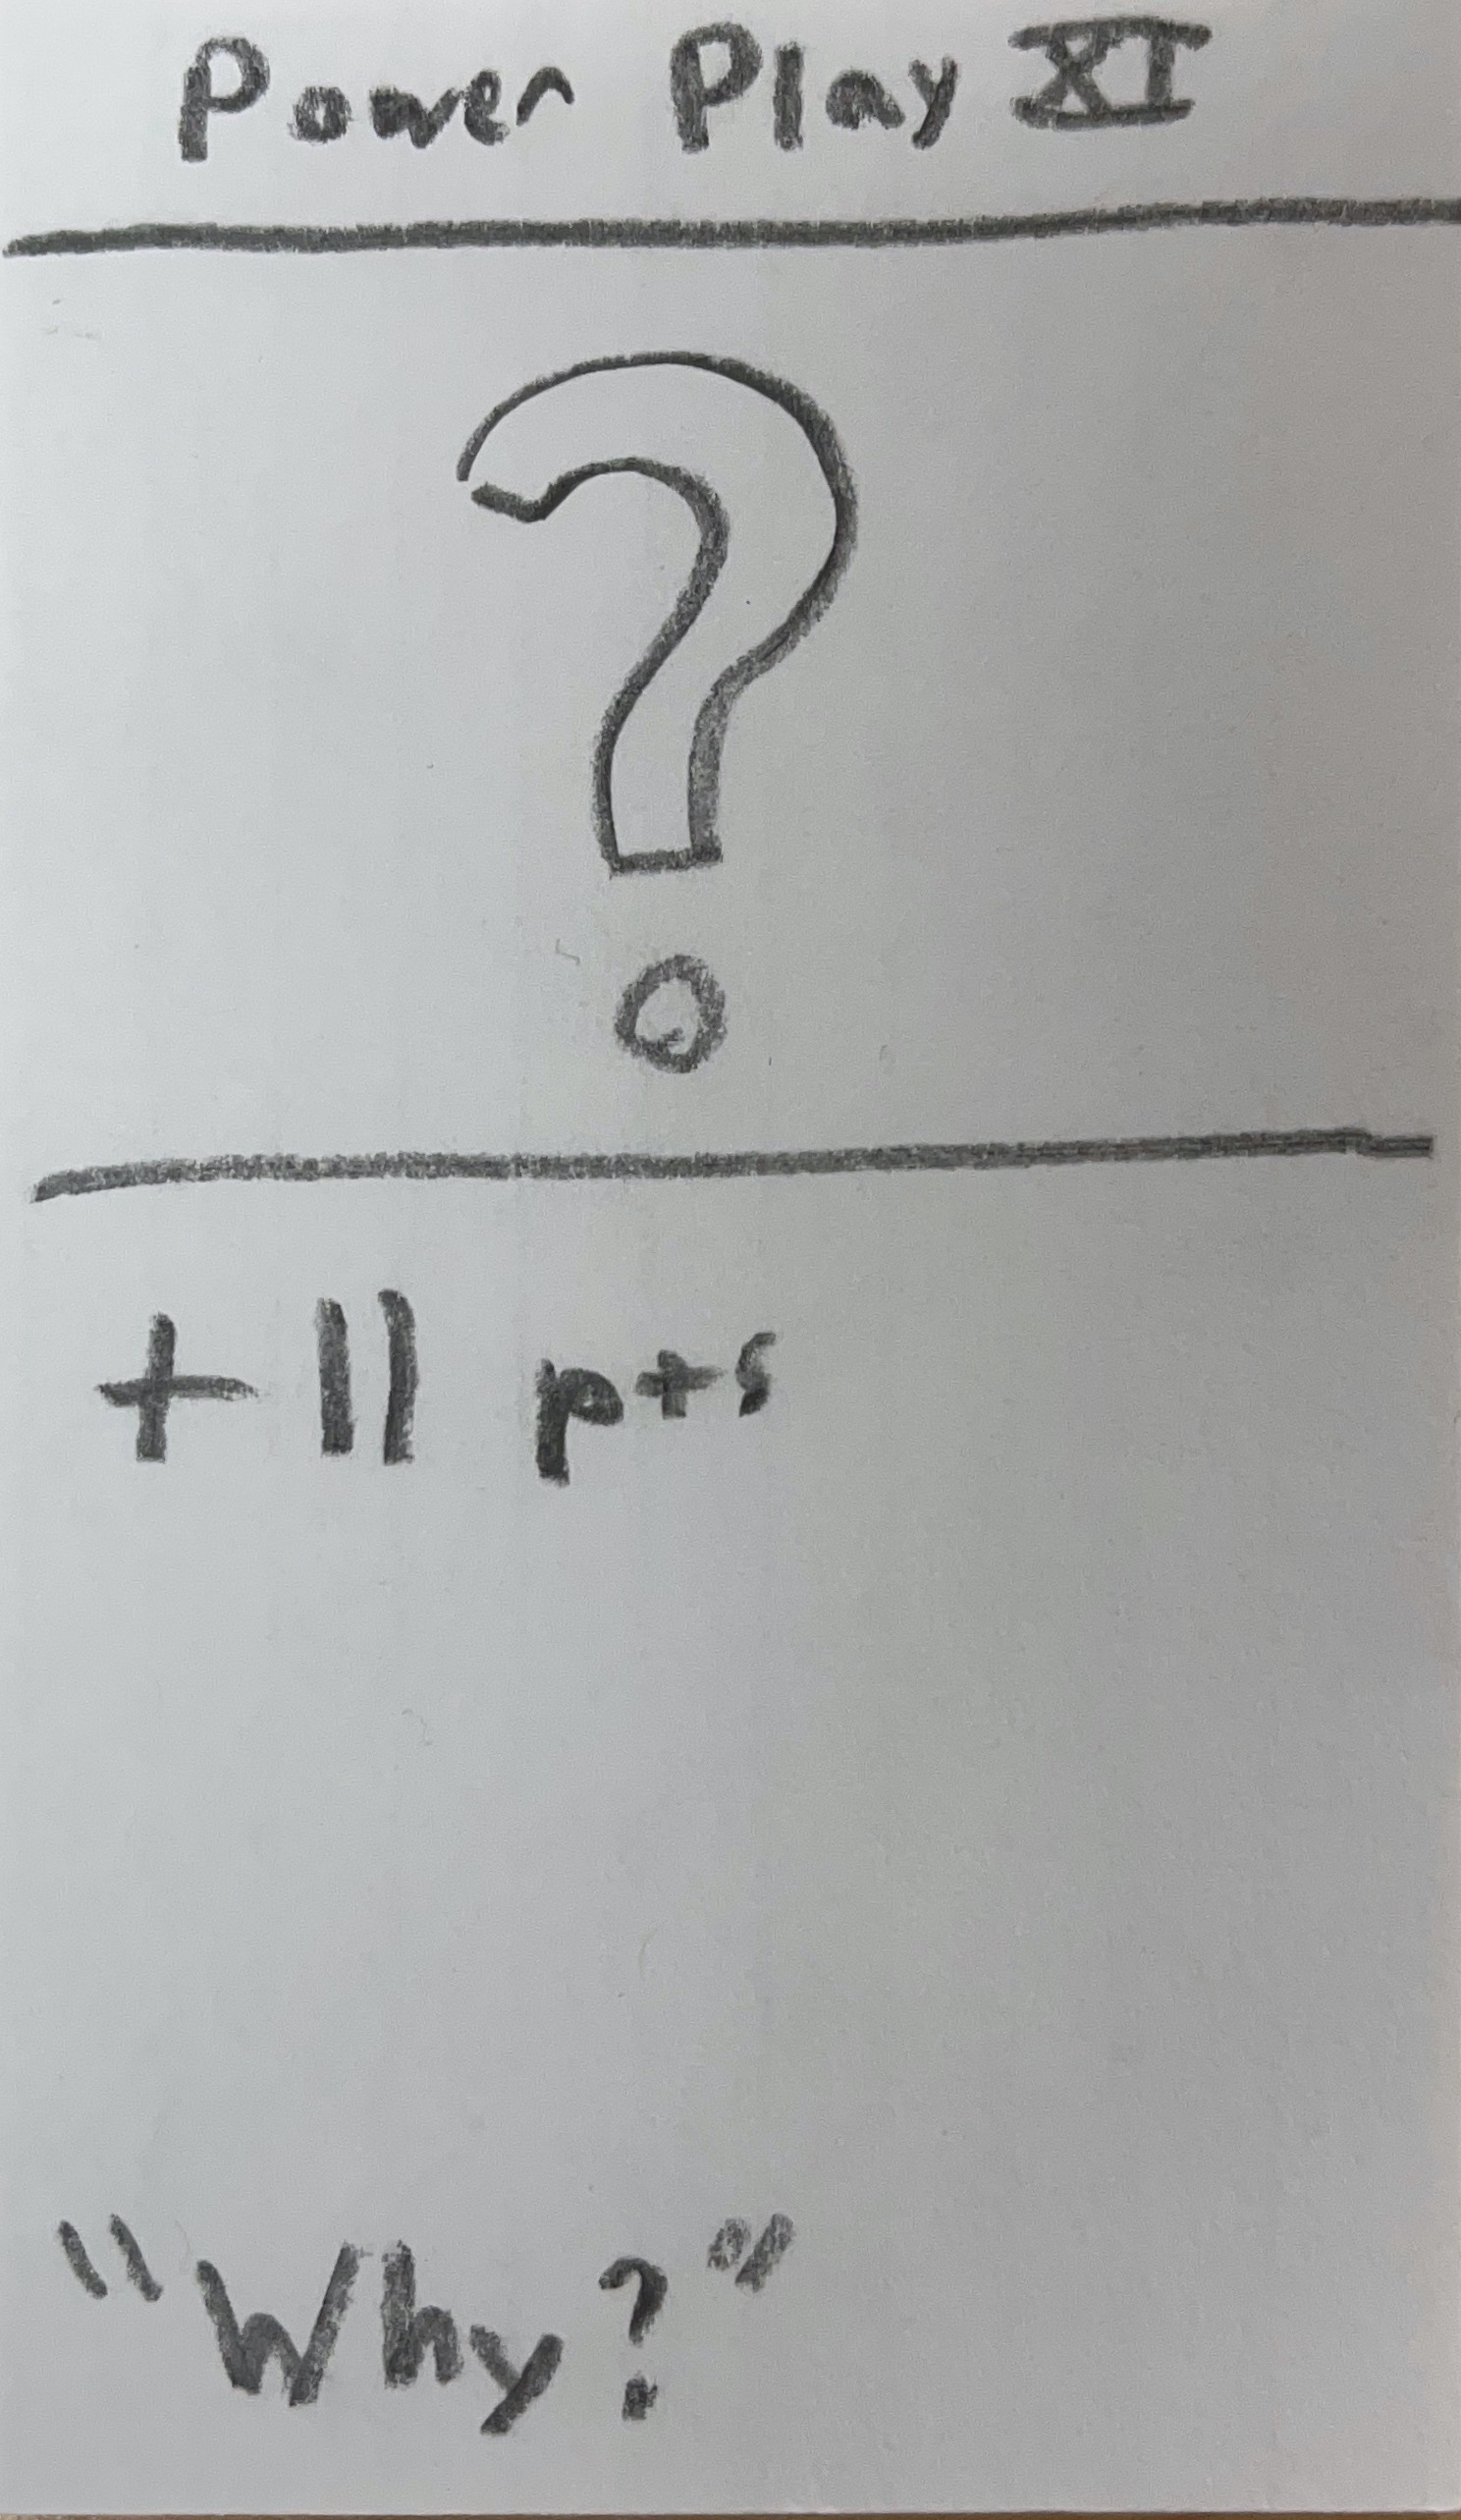 Power Play XI
?
+11 pts
"Why?"